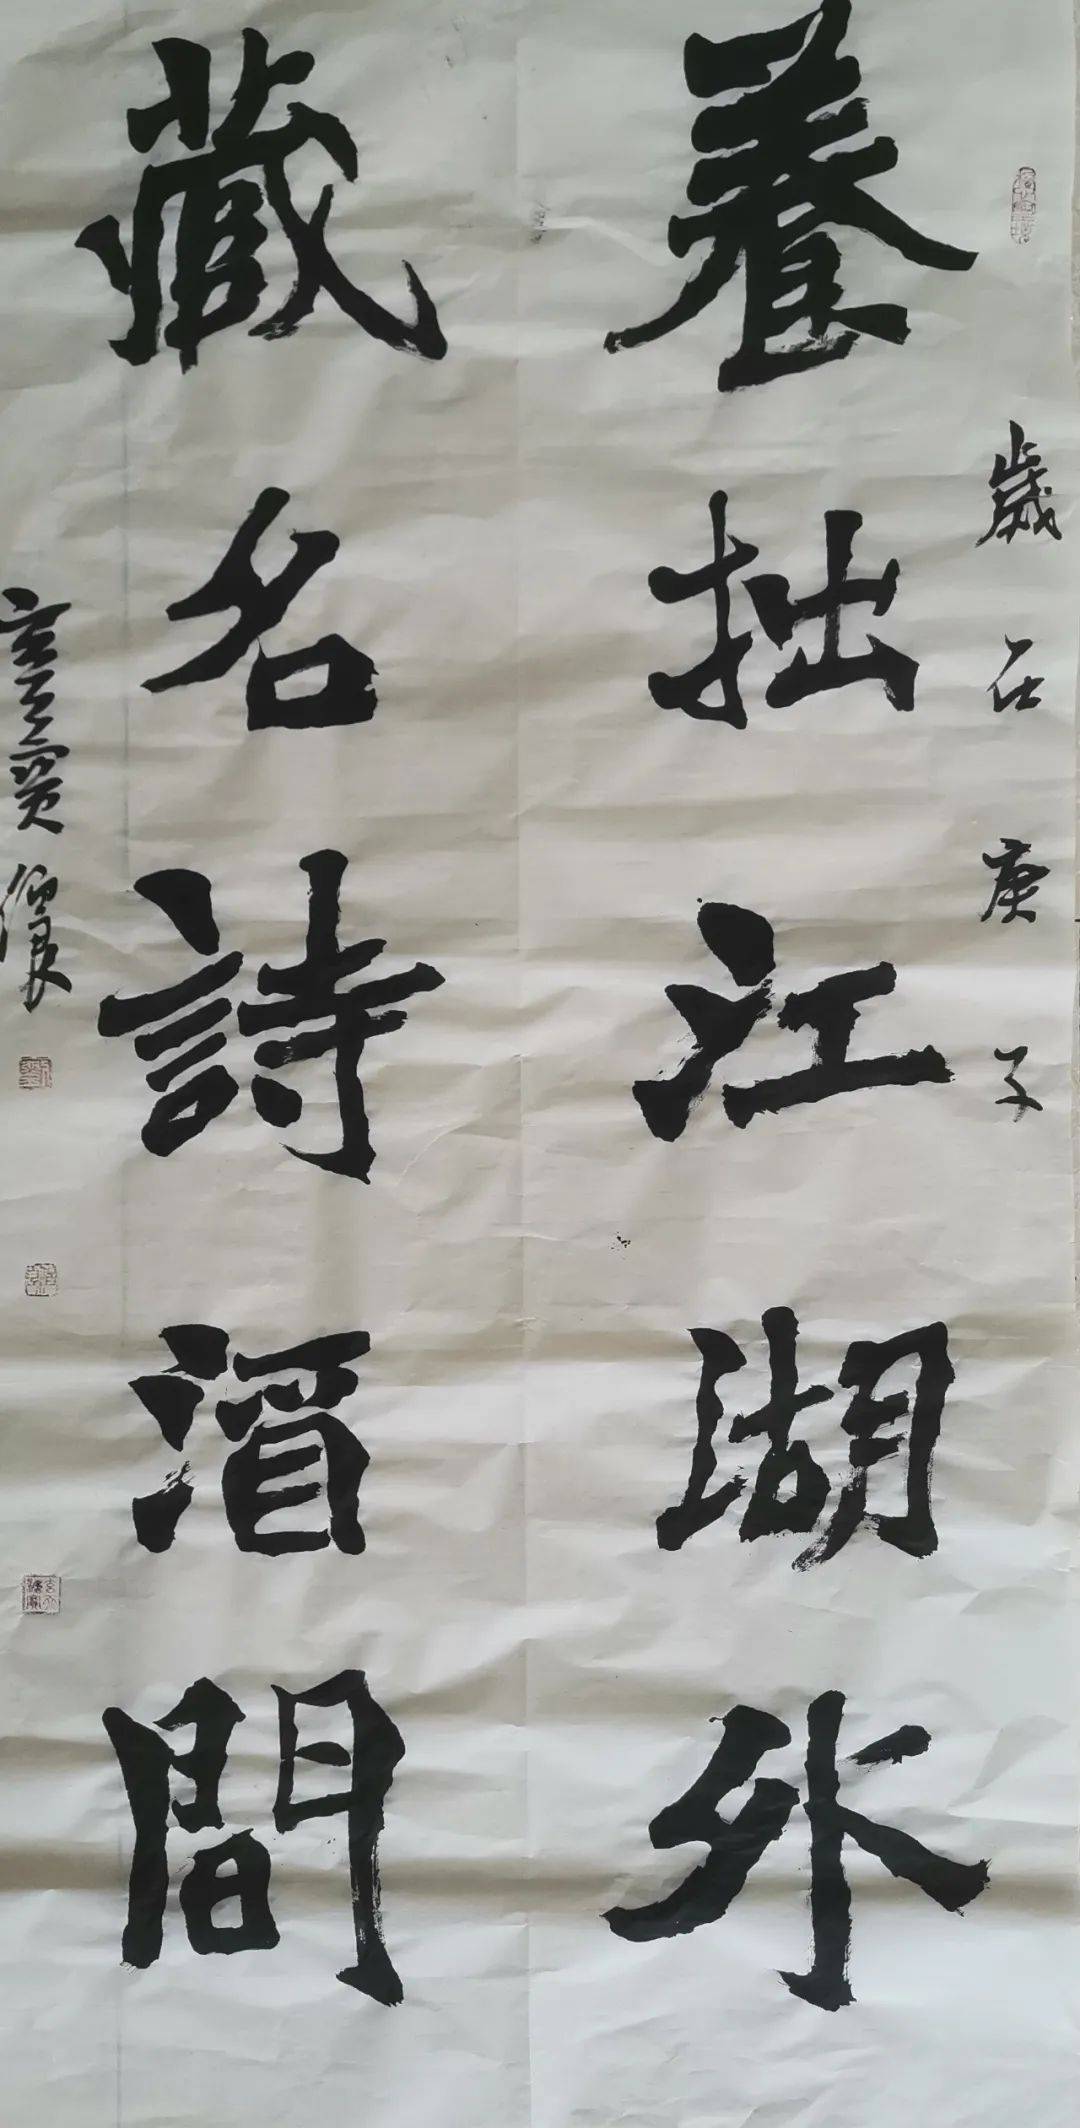 歲在庚子
養拙江湖外
藏名詩酒間